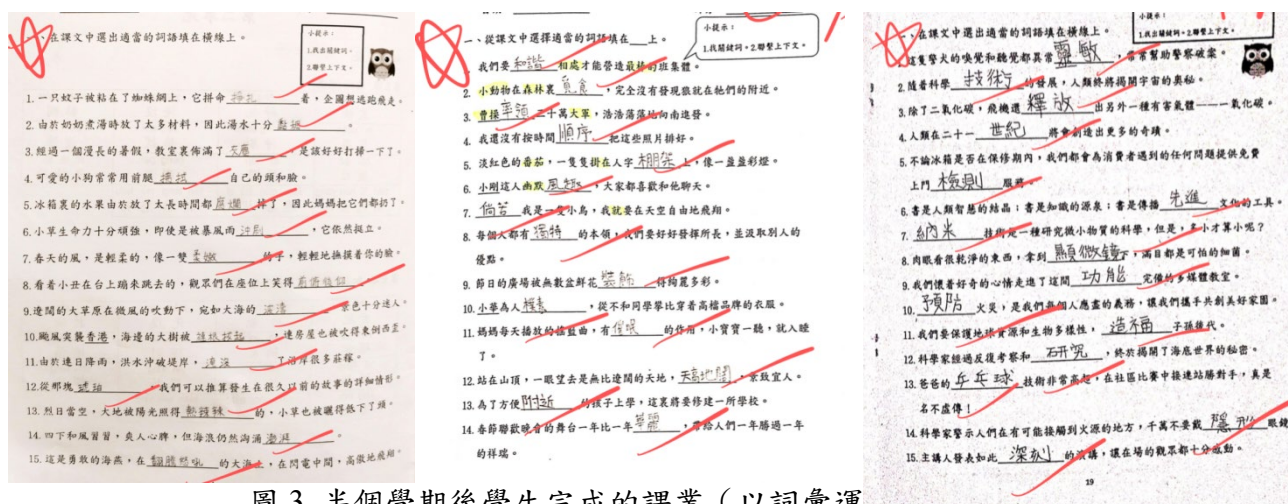 一、在課文中選出適當的詞語填在橫線上。
小提示：
1.找出關鍵詞。
2.聯繫上下文。
1.一只蚊子被粘在了蜘蛛網上，它拼命掙扎着，企圖想逃跑飛走。
2.由於奶奶煮湯時放了太多材料，因此湯水十分黏稠。
3.經過一個漫長的暑假，教室裏佈滿了灰塵，是該好好打掃一下了。
4.可愛的小狗常常用前腿拂拭自己的頭和臉。
5.冰箱裏的水果由於放了太長時間都腐爛掉了，因此媽媽把它們都扔了。
6.小草生命力十分頑強，即使是被暴風雨沖刷，它依然挺立。
7.春天的風，是輕柔的，像一雙柔嫩的手，輕輕地撫摸着你的臉。
8.看着小丑在台上蹦來跳去的，觀眾們在座位上笑得前俯後仰。
9.遼闊的大草原在微風的吹動下，宛如大海的波濤，景色十分迷人。
10.颱風吹襲香港，海邊的大樹被連根拔起，連房屋也被吹得東倒西歪。
11.由於連日降雨，洪水沖破堤岸，淹沒了沿岸很多莊稼。
12.從那塊琥珀，我們可以推算發生在很久以前的故事的詳細情形。
13.烈日當空，大地被陽光照得熱辣辣的，小草也被曬得低下了頭。
14.四下和風習習，爽人心脾，但海浪仍然洶涌澎湃。
15.這是勇敢的海燕，在翻騰怒吼的大海上，在閃電中間，高傲地飛翔。
小提示：
1.找關鍵詞。2.聯繫上下文。
一、從課文中選擇適當的詞語填在__上。
1. 我們要和諧相處才能營造最棒的班集體。
2. 小動物在森林裏覓食，完全沒有發現狼就在牠們的附近。
3. 曹操率領二十萬大軍，浩浩蕩蕩地向南進發。
4. 我還沒有按時間順序把這些照片排好。
5. 淡紅色的番茄，一隻隻掛在人字棚架上，像一盞盞彩燈。
6. 小剛這人幽默風趣，大家都喜歡和他聊天。
7. 倘若我是一隻小鳥，我就要在天空自由地飛翔。
8. 每個人都有獨特的本領，我們要好好發揮所長，並汲取別人的
優點。
9. 節日的廣場被無數盆鮮花裝飾得絢麗多彩。
10.小華為人樸素，從不和同學攀比穿着高檔品牌的衣服。
11.媽媽每天播放的搖籃曲，有催眠的作用，小寶寶一聽，就入睡
了。
12.站在山頂，一眼望去是無比遼闊的天地，天高地闊，景致宜人。
13.為了方便附近的孩子上學，這裏將要修建一所學校。
14.春節聯歡晚會的舞台一年比一年華麗，帶給人們一年勝過一年
的祥瑞。
小提示：
1.找出關鍵詞。2.聯繫上下文。
一、在課文中選出適當的詞語填在橫線上。
1.這隻警犬的嗅覺和聽覺都異常靈敏，常常幫助警察破案。
2.隨着科學技術的發展，人類終將揭開宇宙的奧秘。
3.除了二氧化碳，飛機還釋放出另外一種有害氣體——一氧化碳。
4.人類在二十一世紀將會創造出更多的奇蹟。
5.不論冰箱是否在保修期內，我們都會為消費者遇到的任何問題提供免費
上門檢測服務。
6.書是人類智慧的結晶；書是知識的源泉；書是傳播先進文化的工具。
7.納米技術是一種研究微小物質的科學，但是，多小才算小呢？
8.肉眼看很乾淨的東西，拿到顯微鏡下，滿目都是可怕的細菌。
9.我們懷着好奇的心情走進了這間功能完備的多媒體教室。
10.預防火災，是我們每個人應盡的義務，讓我們攜手共創美好家園。
11.我們要保護地球資源和生物多樣性，造福子孫後代。
12.科學家經過反復考察和研究，終於揭開了海底世界的秘密。
13.爸爸的乒乓球技術非常高超，在社區比賽中接連站勝對手，真是
名不虛傳！
14.科學家警示人們在有可能接觸到火源的地方，千萬不要戴隱形眼鏡
15.主講人發表如此深刻的演講，讓在場的觀眾都十分感動。
19
圖 3 半個學期後學生完成的課業（以詞彙運